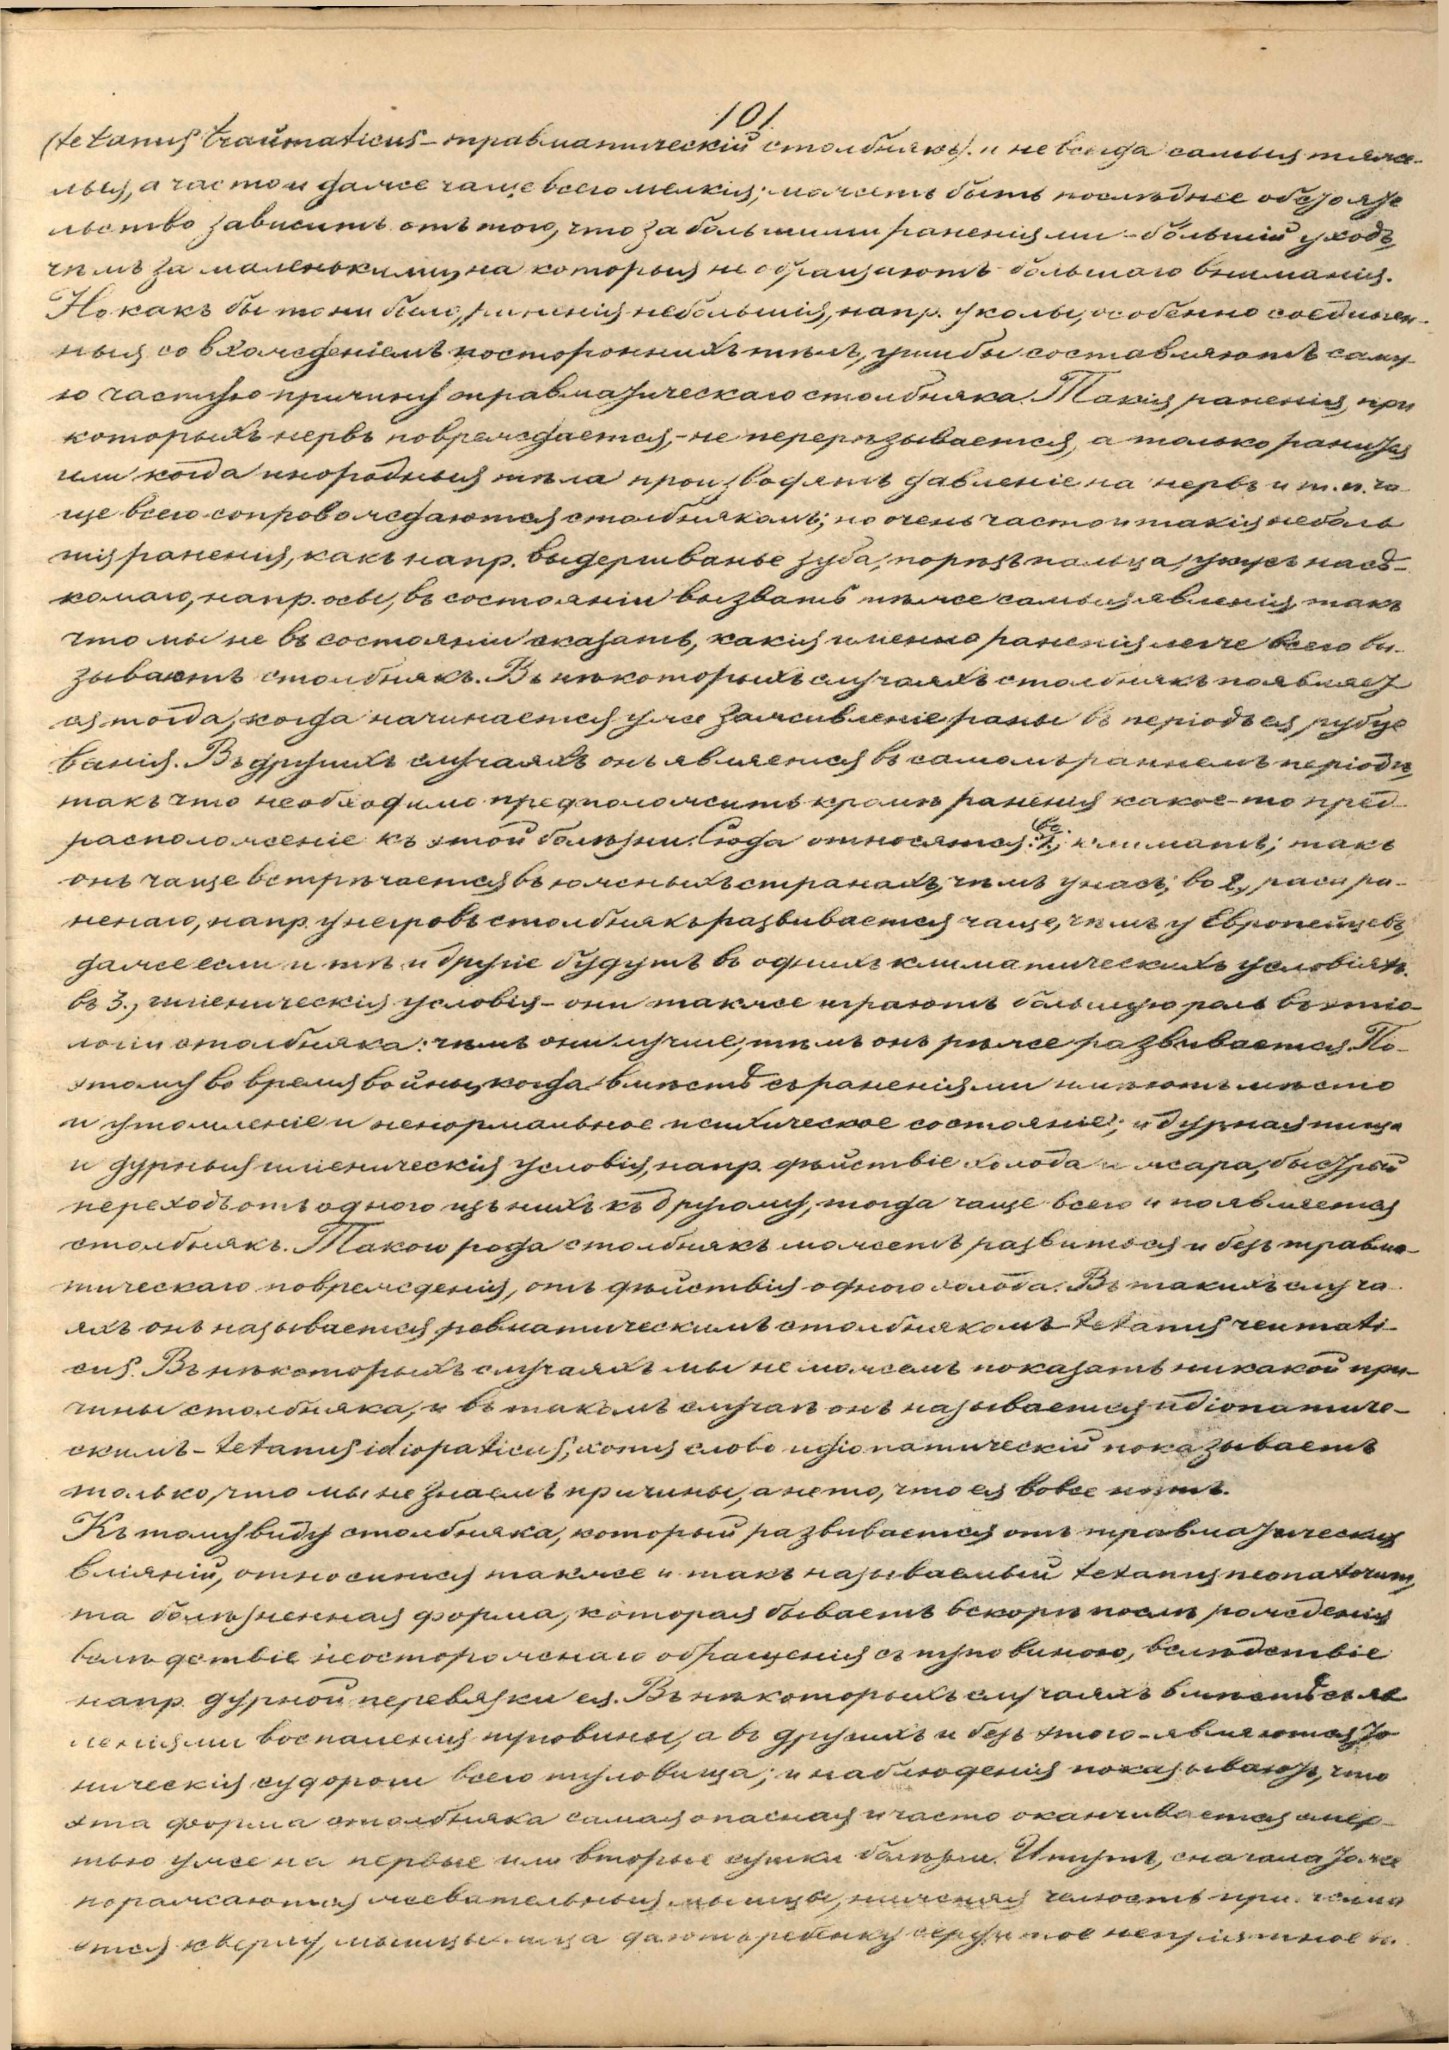 101.
(tetanus traumaticus – травматическій столбнякъ). и не всегда самыя тяже-
лыя, а часто и даже чаще всего мелкія; можетъ быть послѣднее обстояте
льство зависитъ отъ того, что за большими раненіями – бо́льшій уходъ,
чѣмъ за маленькими, на которыя не обращаютъ большаго вниманія.
Но какъ бы то ни было, раненія небольшія, напр. уколы, особенно соединен-
ныя со вхожденіемъ постороннихъ тѣлъ, ушибы составляютъ саму-
ю частую причину травматическаго столбняка. Такія раненія, при
которыхъ нервъ повреждается, – не перерѣзывается, а только ранится
или когда инородныя тѣла производятъ давленіе на нервъ и т. п. ча-
ще всего сопровождаются столбнякомъ; но очень часто и такія неболь
шія раненія, какъ напр. выдергиванье зуба, порѣзъ пальца, укусъ насѣ-
комаго, напр. осы, въ состояніи вызвать тѣже самыя явленія, такъ
что мы не въ состояніи сказать, какія именно раненія легче всего вы-
зываютъ столбнякъ. Въ нѣкоторыхъ случаяхъ столбнякъ появляет
ся тогда, когда начинается уже заживленіе раны въ періодъ ея рубце
ванія. Въ другихъ случаяхъ онъ является въ самомъ раннемъ періодѣ,
такъ что необходимо предположить кромѣ раненія какое-то пред-
расположеніе къ этой болѣзни. Сюда относятся: во 1, климатъ; такъ
онъ чаще встрѣчается въ южныхъ странахъ, чѣмъ у насъ; во 2, раса ра-
ненаго, напр. у негровъ столбнякъ развивается чаще, чѣмъ у Европейцевъ,
даже если и тѣ и другіе будутъ въ однихъ климатическихъ условіяхъ.
въ 3., гигіеническія условія – они также играютъ большую роль въ этіо-
логіи столбняка: чѣмъ они лучше, тѣмъ онъ рѣже развивается. По-
этому во время войны, когда вмѣстѣ съ раненіями имѣютъ мѣсто
и утомленіе и ненормальное психическое состояніе; и дурная пища
и дурныя гигіеническія условія, напр. дѣйствіе холода и жара, быстрый
переходъ отъ одного изъ нихъ къ другому, тогда чаще всего и появляется
столбнякъ. Такого рода столбнякъ можетъ развиться и безъ травма-
тическаго поврежденія, отъ дѣйствія одного холода. Въ такихъ случа-
яхъ онъ называется ревматическимъ столбнякомъ – tetanus reumati-
cus. Въ нѣкоторыхъ случаяхъ мы не можемъ показать никакой при-
чины столбняка, и въ такомъ случаѣ онъ называется идіопатиче-
скимъ – tetanus idiopaticus, хотя слово идіопатическій показываетъ
только, что мы не знаемъ причины, а не то, что ея вовсе нѣтъ.
Къ тому виду столбняка, который развивается отъ травматическихъ
вліяній, относится также и такъ называемый tetanus neonatorum,
та болѣзненная форма, которая бываетъ вскорѣ послѣ рожденія
вслѣдствіе неосторожнаго обращенія съ пуповиною, вслѣдствіе
напр. дурной перевязки ея. Въ нѣкоторыхъ случаяхъ вмѣстѣ съ яв
леніями воспаленія пуповины, а въ другихъ и безъ этого – являются то
ническія судороги всего туловища; и наблюденія показываютъ, что
эта форма столбняка самая опасная и часто оканчивается смер-
тью уже на первые или вторые сутки болѣзни. И тутъ, сначала тоже
поражаются жевательныя мышцы, нижняя челюсть
кверху, мышцы лица даютъ ребенку сердитое непріятное